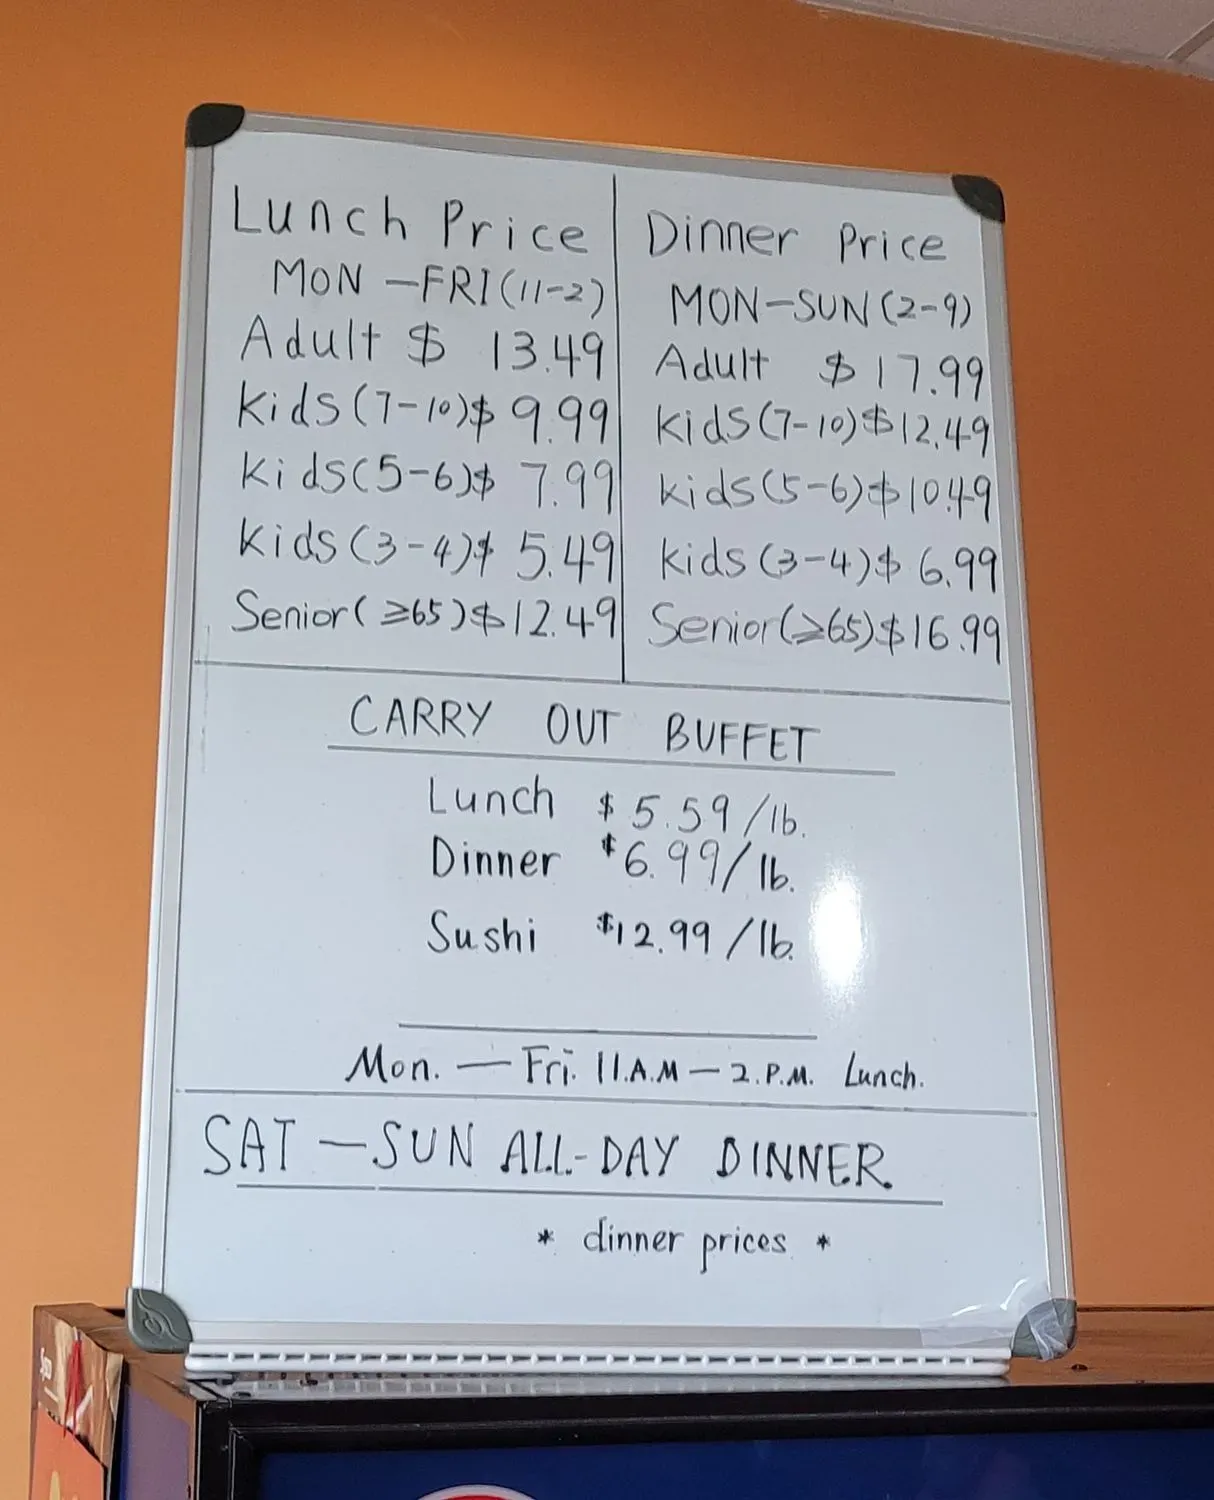 Lunch Price
MON-FRI(11-2)
Adult $ 13.49
Kids(7-10)$ 9.99
Kids(5-6)$ 7.99
Kids(3-4)$ 5.49
Senior(≥65)$12.49
Dinner Price
MON-SUN(2-9)
Adult $17.99
Kids(7-10)$12.49
Kids(5-6)$10.49
Kids(3-4)$6.99
Senior(≥65)$16.99
CARRY OUT BUFFET
Lunch $5.59/lb.
Dinner $6.99/lb.
Sushi $12.99/lb.
Mon. — Fri. 11.A.M — 2.P.M. Lunch.
SAT — SUN ALL-DAY DINNER.
* dinner prices *